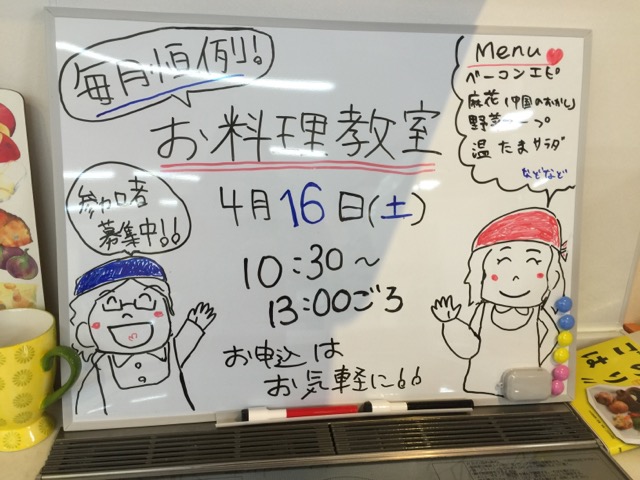 毎月恒例!
お料理教室
4月16日(土)
10:30〜
13:00ごろ
お申込は
お気軽に!!
参加者
募集中!!
Menu
ベーコンエピ
麻花(中国のおかし)
野菜スープ
温たまサラダ
などなど